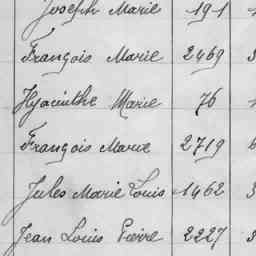 Joseph Marie 191
François Marie 2469
Hyacinthe Marie 76
François Marie 2719
Jules Marie Louis 1462
Jean Louis Pierre 2227